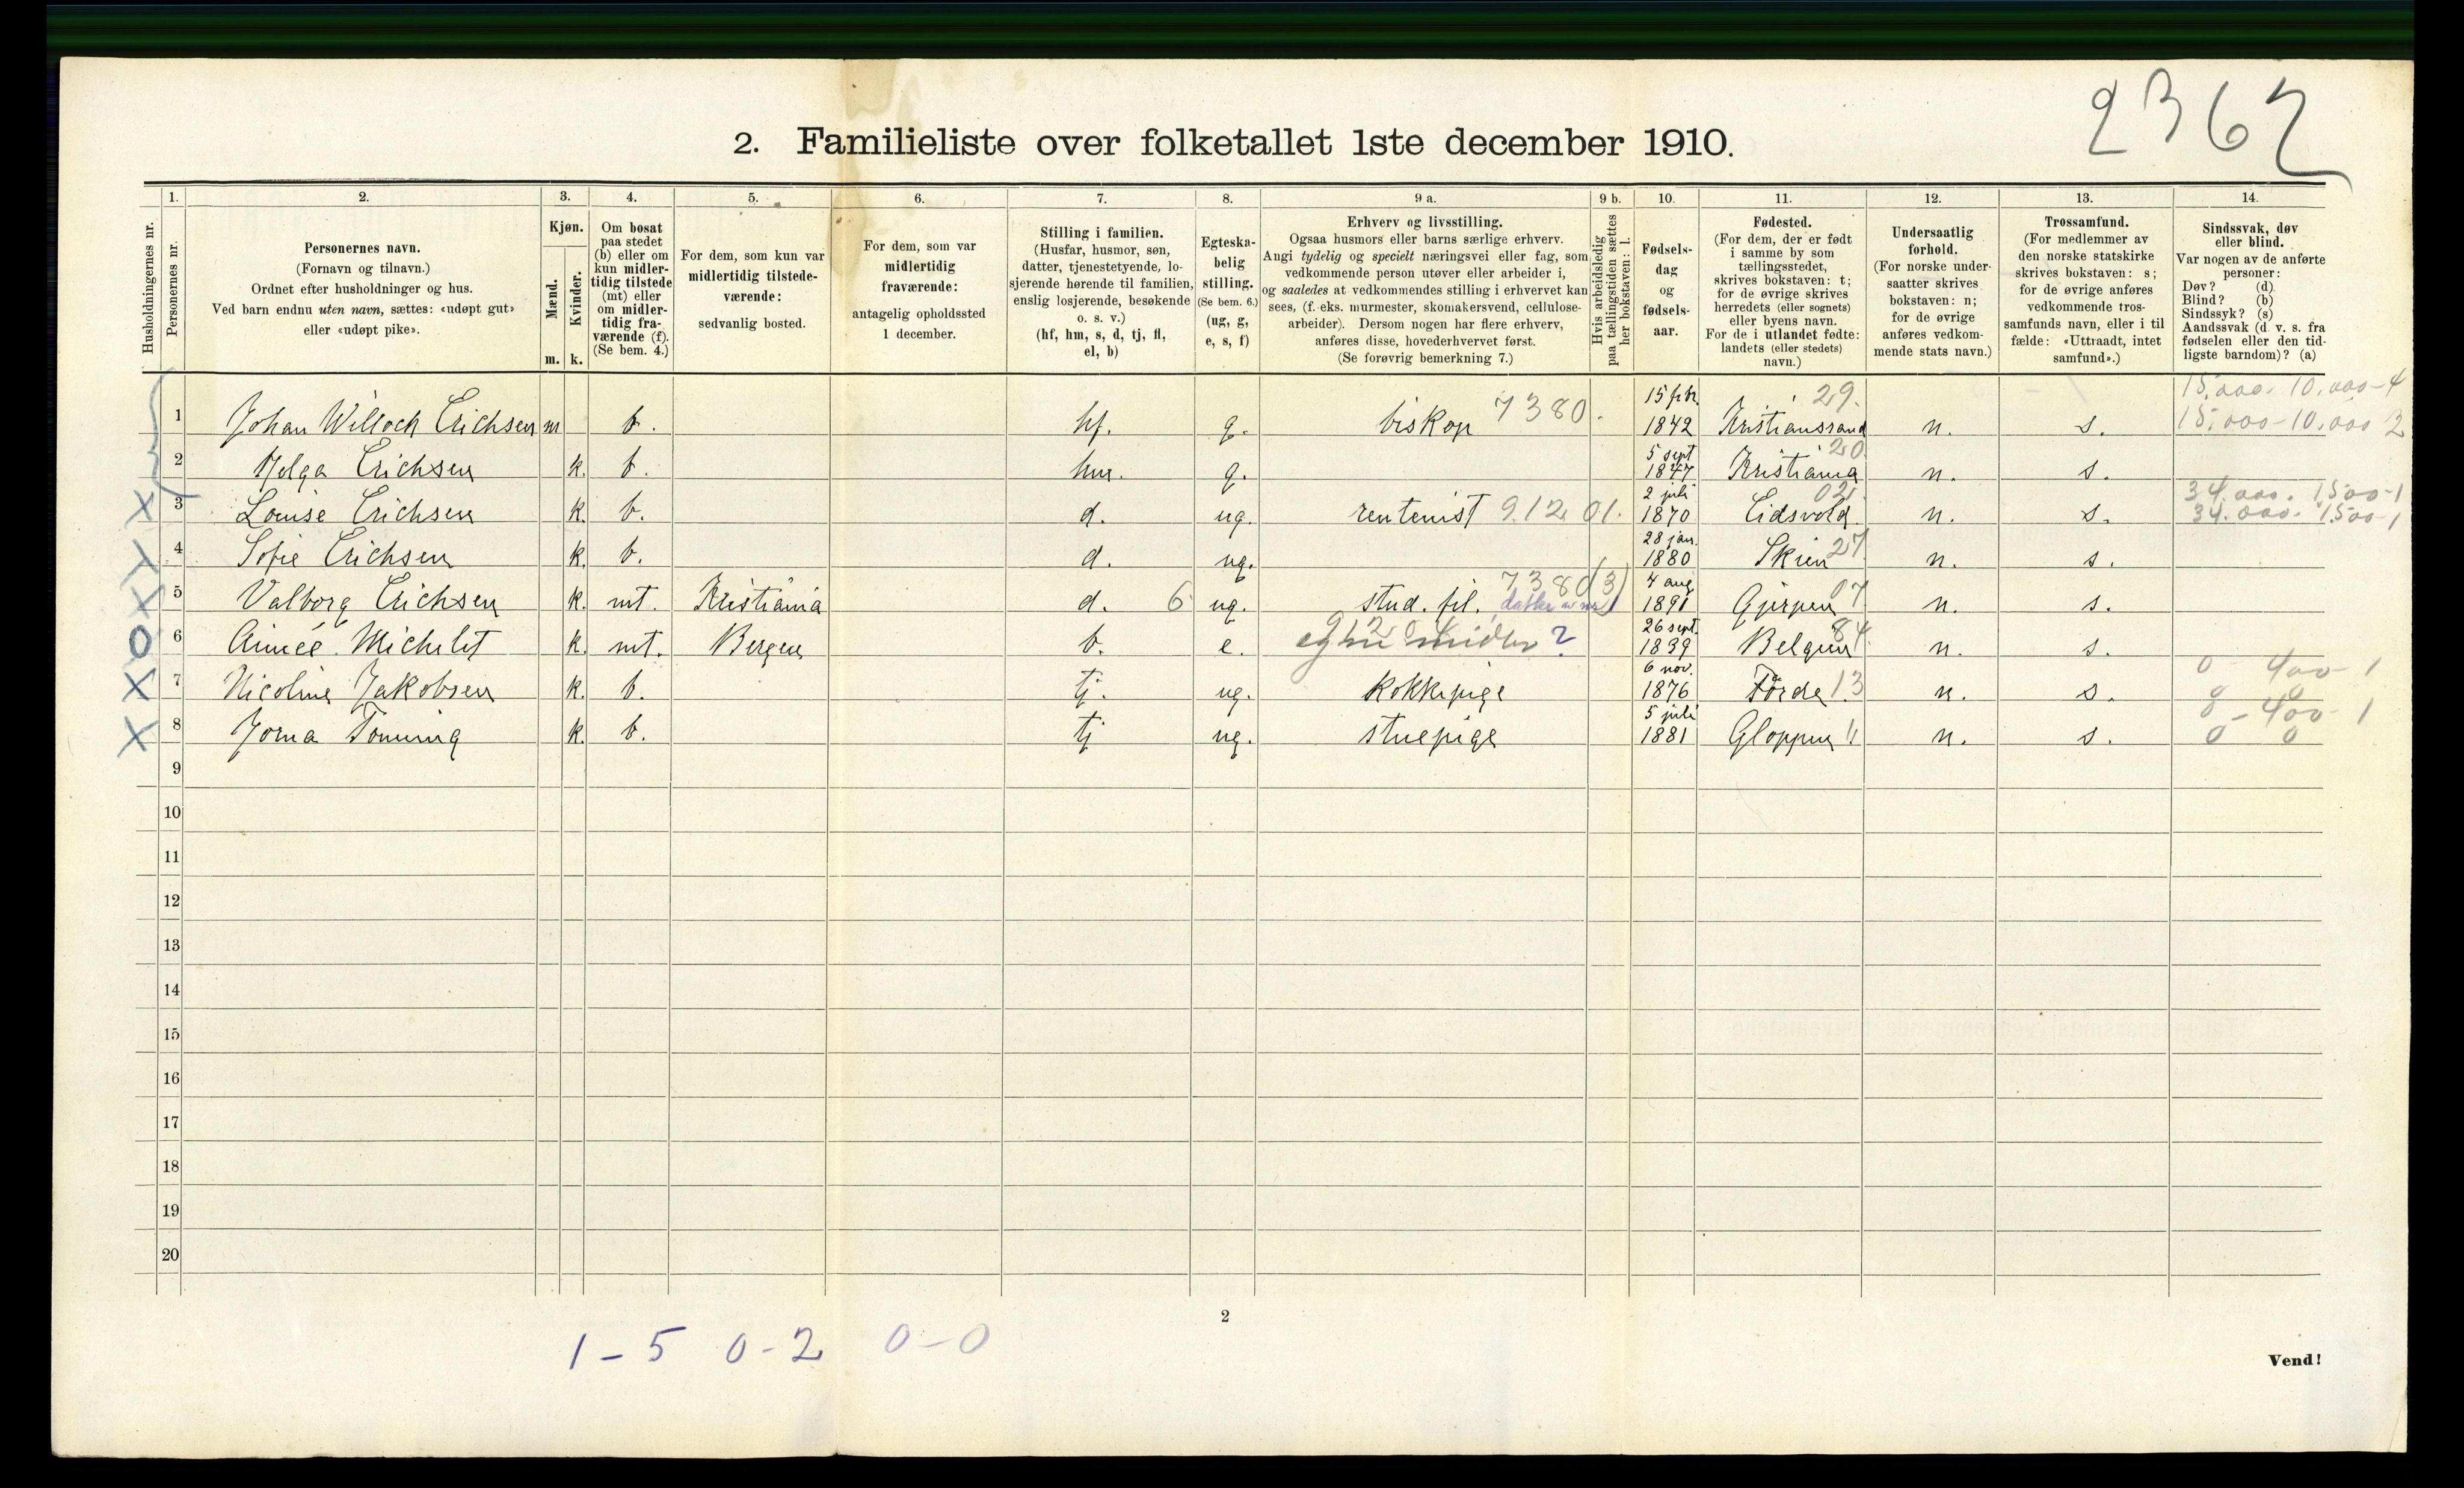 2362
2. Familieliste over folketallet 1ste december 1910.
1. 2. 3. 4. 5. 6. 7. 8. 9 a. 9 b. 10. 11. 12. 13. 14.
Husholdningernes nr.
Personernes nr.
Personernes navn.
(Fornavn og tilnavn.)
Ordnet efter husholdninger og hus.
Ved barn endnu uten navn, sættes: «udøpt gut»
eller «udøpt pike».
Kjøn.
Mænd.
Kvinder.
m. k.
Om bosat
paa stedet
(b) eller om
kun midler-
tidig tilstede
(mt) eller
om midler-
tidig fra-
værende (f).
(Se bem. 4.)
For dem, som kun var
midlertidig tilstede-
værende:
sedvanlig bosted.
For dem, som var
midlertidig
fraværende:
antagelig opholdssted
1 december.
Stilling i familien.
(Husfar, husmor, søn,
datter, tjenestetyende, lo-
sjerende hørende til familien,
enslig losjerende, besøkende
o. s. v.)
(hf, hm, s, d, tj, fl,
el, b)
Egteska-
belig
stilling.
(Se bem. 6.)
(ug, g,
e, s, f)
Erhverv og livsstilling.
Ogsaa husmors eller barns særlige erhverv.
Angi tydelig og specielt næringsvei eller fag, som
vedkommende person utøver eller arbeider i,
og saaledes at vedkommendes stilling i erhvervet kan
sees, (f. eks. murmester, skomakersvend, cellulose-
arbeider). Dersom nogen har flere erhverv,
anføres disse, hovederhvervet først.
(Se forøvrig bemerkning 7.)
Hvis arbeidsledig
paa tællingstiden sættes
her bokstaven: l.
Fødsels-
dag
og
fødsels-
aar.
Fødested.
(For dem, der er født
i samme by som
tællingsstedet,
skrives bokstaven: t;
for de øvrige skrives
herredets (eller sognets)
eller byens navn.
For de i utlandet fødte:
landets (eller stedets)
navn.)
Undersaatlig
forhold.
(For norske under-
saatter skrives
bokstaven: n;
for de øvrige
anføres vedkom-
mende stats navn.)
Trossamfund.
(For medlemmer av
den norske statskirke
skrives bokstaven: s;
for de øvrige anføres
vedkommende tros-
samfunds navn, eller i til
fælde: «Uttraadt, intet
samfund».)
Sindssvak, døv
eller blind.
Var nogen av de anførte
personer:
Døv? (d)
Blind? (b)
Sindssyk? (s)
Aandssvak (d. v. s. fra
fødselen eller den tid-
ligste barndom)? (a)
15.000. 10.000-4
1 Johan Willoch Erichsen m b. hf. g. biskop 7380. 15 febr. 1842 Kristianssand 29. n. s. 15.000-10.000 2
2 Helga Erichsen k. b. hm. g. 5 sept 1847 Kristiania 20 n. s.
34.000. 1500-1
X 3 Louise Erichsen k. b. d. ug. rentenist 912 01. 2 juli 1870 Eidsvold 02. n. s. 34.000. 1500-1
X 4 Sofie Erichsen k. b. d. ug. 28 jan. 1880 Skien 27 n. s.
X 5 Valborg Erichsen k. mt. Kristiania d. 6 ug. stud. fil. 7380(3) datter av nr 1 4 aug 1891 Gjerpen 07 n. s.
O 6 Aimée Michelet k. mt. Bergen b. e. egne midler ? 26 sept. 1839 Belgien 84 n. s.
0 400-1
X 7 Nicoline Jakobsen k. b. tj. ug. kokkepige 6 nov. 1876 Førde 13 n. s. 0 0
0-400-1
X 8 Jorna Tonning k. b. tj ug. stuepige 5 juli 1881 Gloppen 11 n. s. 0 0
9
10
11
12
13
14
15
16
17
18
19
20
2
1-5 0-2 0-0
Vend!